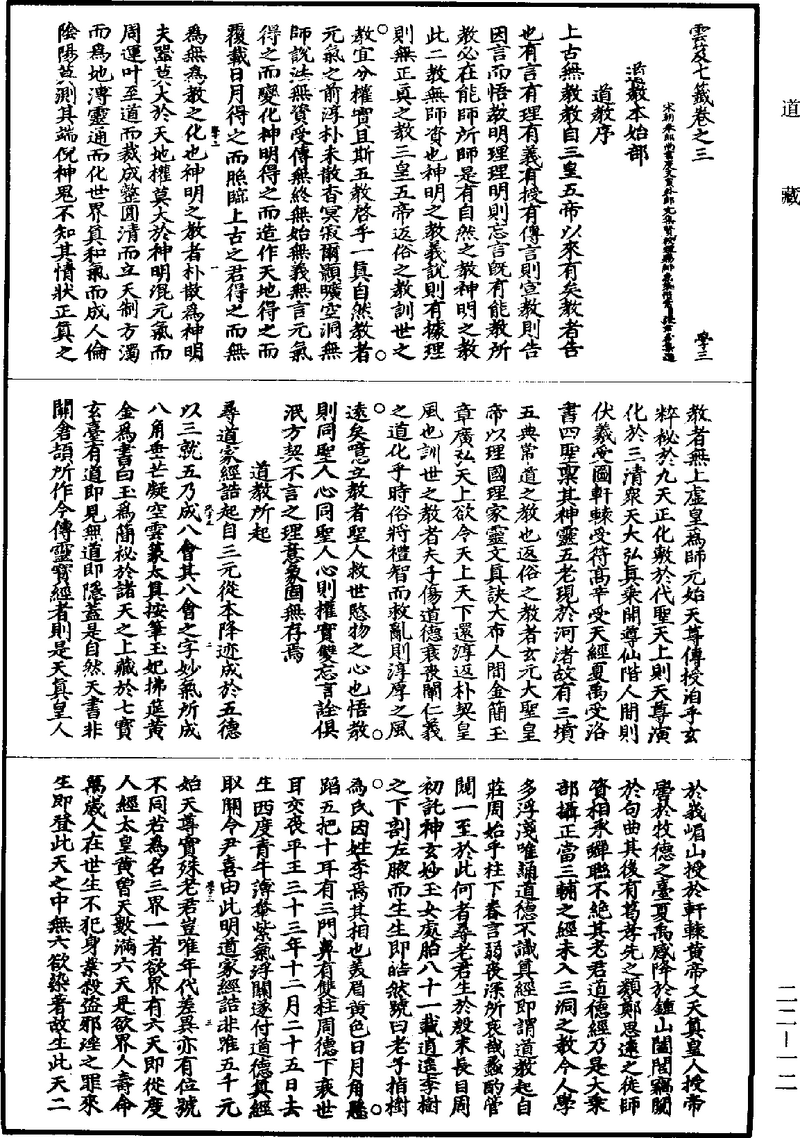 道藏
雲笈七籤卷之三 學三
道教本始部
道教序
上古無教教自三皇五帝以來有矣教者告
也有言有理有義有授有傳言則宣教則告
因言而悟教明理理明則忘言既有能教所
教必在能師所師是有自然之教神明之教
此二教無師資也神明之教義說則有據理
則無正真之教三皇五帝返俗之教訓世之
教宜分權實且斯五教啓乎一真自然教者
元氣之前淳朴未散杳冥寂爾顥曠空洞無
師說法無資受傳無終無始無義無言元氣
得之而變化神明得之而造作天地得之而
覆載日月得之而照臨上古之君得之而無
爲無爲教之化也神明之教者朴散爲神明
夫器莫大於天地權莫大於神明混元氣而
周運叶至道而裁成整圓清而立天制方濁
而爲地溥靈通而化世界真和氣而成人倫
陰陽莫測其端倪神鬼不知其情狀正真之
教者無上虛皇爲師元始天尊傳授洎乎玄
粹秘於九天正化敷於代聖天上則天尊演
化於三清衆天大弘真乘開導仙階人間則
伏羲受圖軒轅受符高辛受天經夏禹受洛
書四聖稟其神靈五老現於河渚故有三墳
五典常道之教也返俗之教者玄元大聖皇
帝以理國理家靈文真訣大布人間金簡玉
章廣弘天上欲令天上天下還淳返朴契皇
風也訓世之教者夫子傷道德衰喪闡仁義
之道化乎時俗將禮智而救亂則淳厚之風
遠矣噫立教者聖人救世愍物之心也悟教
則同聖人心同聖人心則權實雙忘言詮俱
泯方契不言之理意象固無存焉
道教所起
尋道家經誥起自三元從本降迹成於五德
以三就五乃成八會其八會之字妙氣所成
八角垂芒凝空雲篆太真按筆玉妃拂筵黄
金爲書白玉爲簡秘於諸天之上藏於七寶
玄臺有道即見無道即隱蓋是自然天書非
關倉頡所作今傳靈寶經者則是天真皇人
於峩嵋山授於軒轅黄帝又天真皇人授帝
嚳於牧德之臺夏禹感降於鍾山闔閭竊闚
於句曲其後有葛孝先之類鄭思遠之徒師
資相承蟬聯不絶其老君道德經乃是大乘
部攝正當三輔之經未入三洞之教今人學
多浮淺唯誦道德不識真經即謂道教起自
莊周始乎柱下眷言弱夜深所哀哉蠡酌管
闚一至於此何者尋老君生於殷末長自周
初託神玄妙玉女處胎八十一載逍遥李樹
之下剖左腋而生生即皓然號曰老子指樹
爲氏因姓李焉其相也美眉黄色日月角懸
蹈五把十耳有三門鼻有雙柱周德下衰世
耳交喪平王三十三年十二月二十五日去
生西度青牛薄輂紫氣浮關遂付道德真經
取關令尹喜由此明道家經誥非唯五千元
始天尊實殊老君豈唯年代差異亦有位號
不同若爲名三界一者欲界有六天即從度
人經太皇黄曾天數滿六天是欲界人壽命
萬歲人在世生不犯身業殺盗邪婬之罪來
生即登此天之中無六欲染著故生此天二
二二—一二